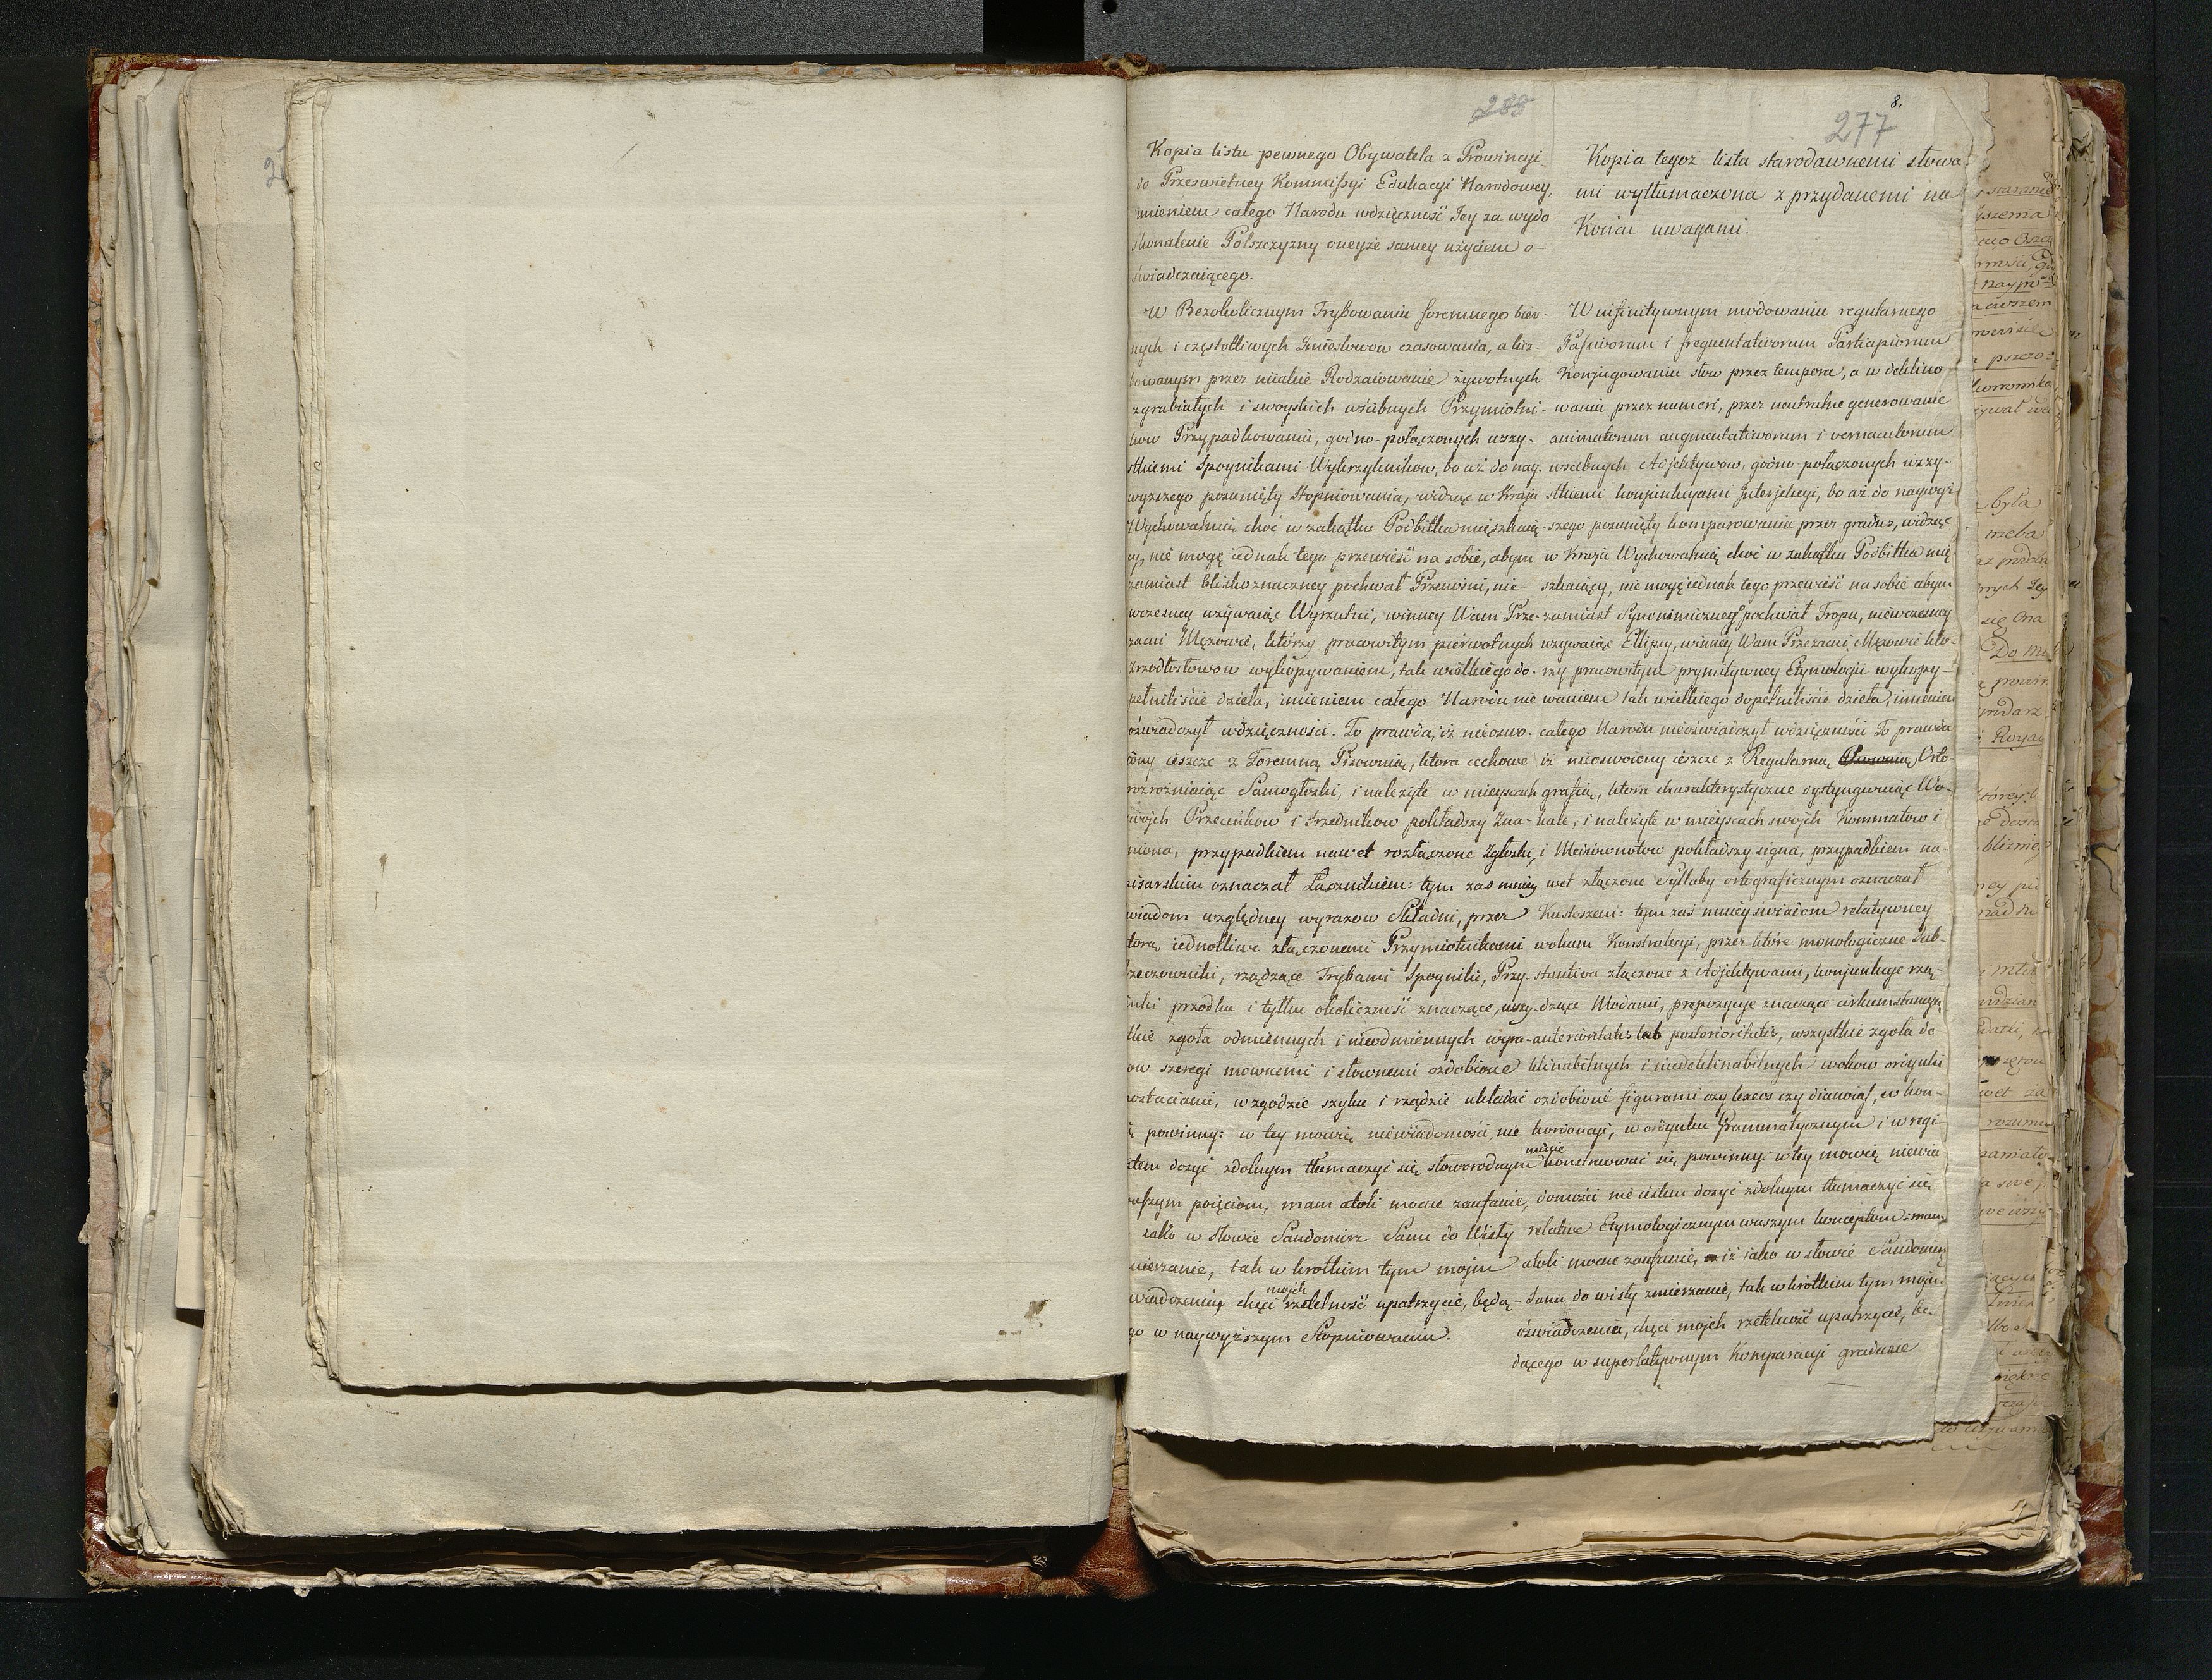 283
8.
277
Kopia listu pewnego Obywatela z Prowincyi
do Przeswietney Kommissyi Edukacyi Narodowey,
imieniem całego Narodu wdzięczność Jey za wydo
skonalenie Polszczyzny oneyże samey użyciem o-
świadczaiącego.
W Bezokolicznym Trybowaniu foremnego bier-
nych i częstotliwych Imiesłowow czasowania, a licz-
bowanym przez niiakie Rodzaiowanie żywotnych
zgrubiałych i swoyskich wsobnych Przymiotni-
kow Przypadkowaniu, godno-połączonych wszy-
stkiemi Spoynikami Wykrzyknikow, bo aż do nay-
wyższego posunięty Stopniowania, widząc w Kraju
Wychowalnią, choć w zakątku Podbitka mięszkaią-
cy, nie mogę iednak tego przewieść na sobie, abym
zamiast bliskoznaczney pochwał Przenośni, nie-
wczesney używaiąc Wyrzutni, winney Wam Prze-
zacni Mężowie, którzy pracowitym pierwotnych
Zrzodłosłowow wykopywaniem, tak wielkiego do-
pełniliście dzieła, imieniem całego Narodu nie
oświadczył wdzięczności. To prawda, iż nieoswo-
iony ieszcze z Foremną Pisownią, ktora cechowe
rozrożniaiąc Samogłoski, i należyte w mieyscach
swojch Przecinkow i Srzednikow pokładszy Zna-
miona, przypadkiem nawet rozłączone Zgłoski,
pisarskim oznaczał Łącznikiem: tym zas mniey
wiadom względney wyrazow Składni, przez
ktorą iednotliwe złączonemi Przymiotnikami
Rzeczowniki, rządzące Trybami Spoyniki, Przy-
imki przodku i tyłku okoliczność znaczące, wszy-
stkie zgoła odmiennych i nieodmiennych wyra-
zow szeregi mownemi i słownemi ozdobione
postaciami, w zgodzie szyku i rządzie układać
się powinny: w tey mowię niewiadomości, nie
iestem dosyć zdolnym tłumaczyć się słoworodnym
waszym poięciom, mam atoli mocne zaufanie,
iż iako w słowie Sandomirz Sanu do Wisły
zmierzanie, tak w krotkim tym mojm
oświadczeniu, chęci mojch rzetelność upatrzycie, będą-
cego w naywyższym Stopniowaniu.
Kopia tegoż listu starodawnemi słowa
mi wytłumaczona z przydanemi na
Końcu uwagami.
W infinitywnym modowaniu regularnego
Passivorum i frequentativorum Participiorum
Konjugowaniu słow przez tempora, a w deklino
waniu przez numeri, przez neutralne generowanie
animatorum augmentativorum i vernaculorum
wsobnych Adjektywow, godno połączonych wszy-
stkiemi konjunkcyami Interjekcyi, bo aż do naywyż-
szego posunięty komparowania przez gradus, widząc
w Kraju Wychowalnią, choć w zakątku Podbitka mię
szkaiący, nie mogę iednak tego przewieść na sobie abym
zamiast Synonimiczney pochwał Tropu, niewczesney
używaiąc Ellipsy, winney Wam Przezacni Mężowie kto-
rzy pracowitym prymitywney Etymologii wykopy-
waniem tak wielkiego dopełniliście dzieła, imieniem
całego Narodu nieoświadczył wdzięczności To prawda
iż nieoswoiony ieszcze z Regularną Orto
grafią, ktora charakterystyczne dystyngwuiąc Wo-
kale, i należyte w mieyscach swojch Kommatow i
i Mediównotow pokładszy signa, przypadkiem na-
wet złączone Syllaby ortograficznym oznaczał
Kustoszem: tym zaś mniey swiadom relatywney
wokum Konstrukcyi, przez które monologiczne Sub-
stantiva złączone z Adjektywami, konjunkcye rzą-
dzące Modami, prepozycye znaczące cirkumstancyą
anterioritatis lub posterioritatis, wszystkie zgoła de
klinabilnych i niedeklinabilnych wokow ordynki
ozdobione figurami czy lexeos czy dianoias, w kon-
kordancyi, w ordynku Grammatycznym i w regi
meie konstruować się powinny: w tey mowię niewia
domości nie iestem dosyć zdolnym tłumaczyć się
relative Etymologicznym waszym konceptom: mam
atoli mocne zaufanie, iż iako w słowie Sandomirz
Sanu do wisły zmierzanie, tak w krótkim tym mojm
oświadczeniu, chęci mojch rzetelność upatrzycie, bę
dącego w superlatywnym Komparacyi gradusie